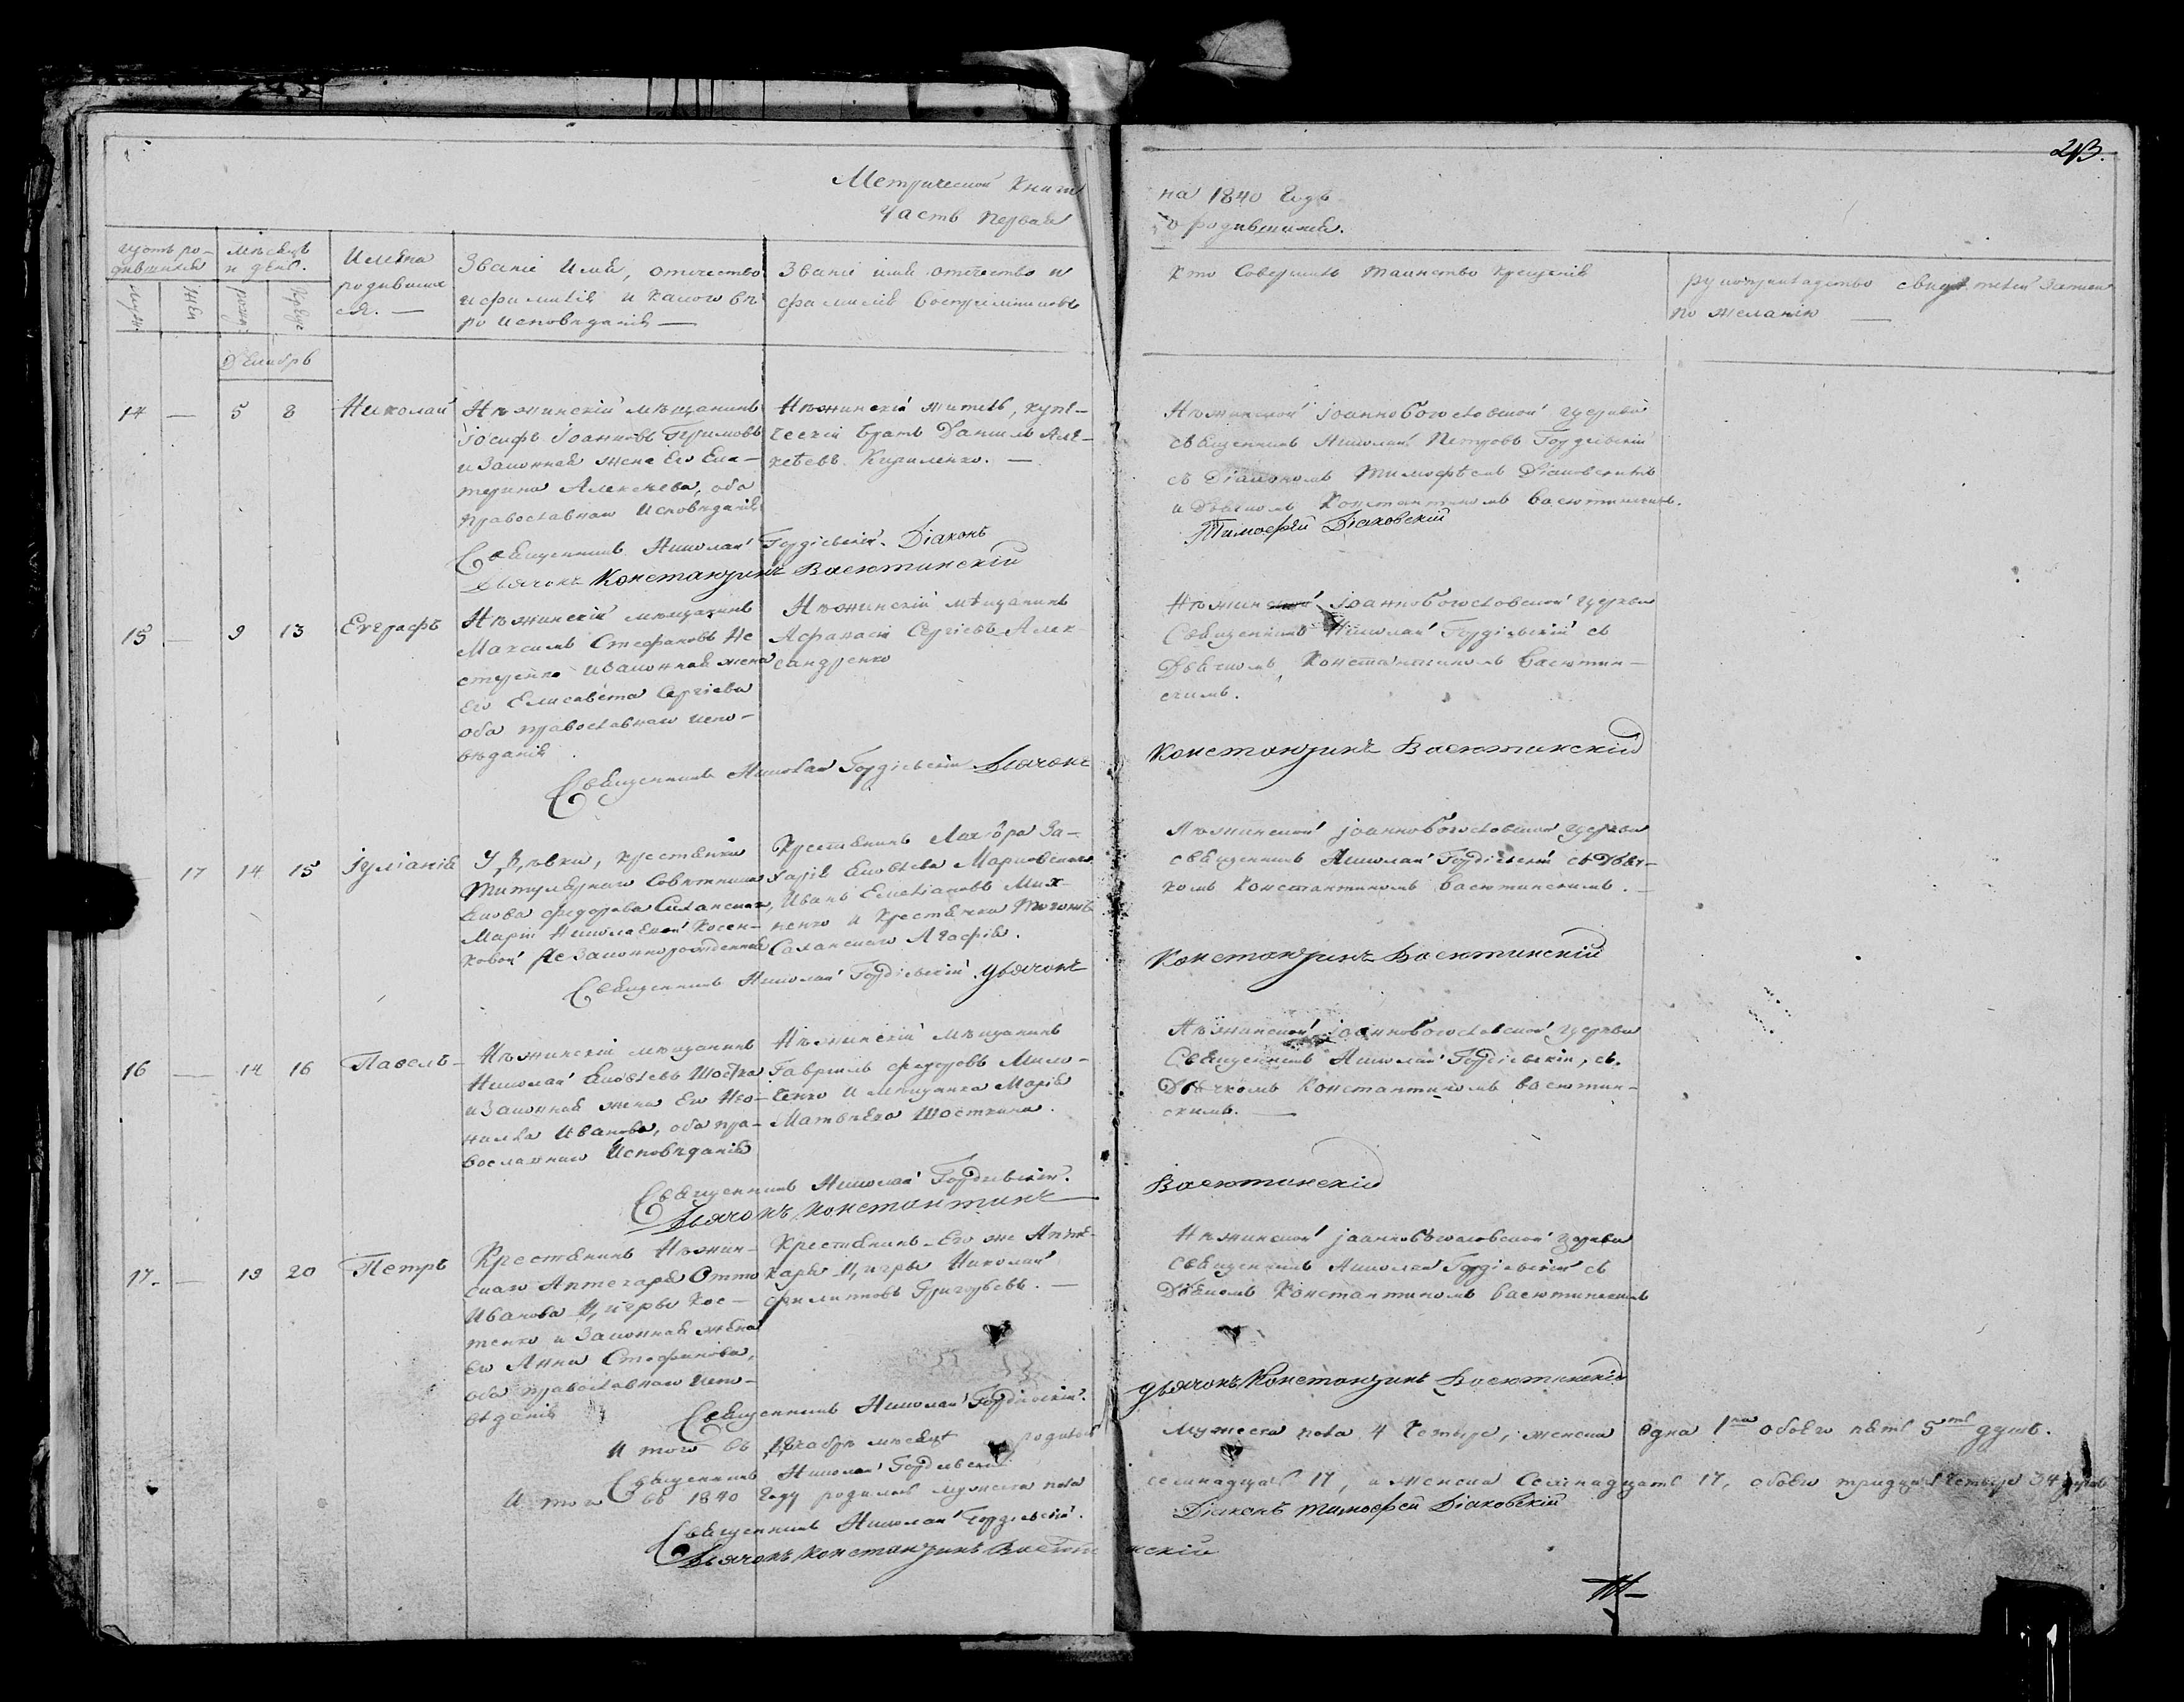 213.
Метрической Книги
Часть первая
на 1840 Годъ
о родившихся.
щотъ ро-
дившихся
мѣсяцъ
и день.
Имена
родивших
ся. —
Званіе Имя, отечество
и фамилія и какого вѣ
ро исповѣданія —
Званіе имя отечество и
фамилія воспріемниковъ
Кто Совершилъ таинство крещенія
рукоприкладство свидѣтелей записи
по желанію —
муж:
Жен
рожд:
Крещ:
Декабрь
14 — 5 8 Николай
Нѣжинскій мѣщанинъ
Іосифъ Іоанновъ
и Законная жена Его Ека-
терина Алексѣева, оба
православнаго Исповѣданія
Нѣжинскій житель, купе-
ческій братъ Даніилъ Але-
ксѣевъ Кириленко. —
Нѣжинской Іоанно Богословской Церкви
священникъ Николай Петровъ Гордіевскій
съ Діакономъ Тимофѣемъ Діаковскимъ
и Дьячкомъ Константиномъ Васютинскимъ.
Священникъ Николай Гордіевскій. Діаконъ
Тимофѣй Діаковскій
Дьячокъ Константинъ Васютинскій
15 — 9 13 Евграфъ
Нѣжинскій мѣщанинъ
Максимъ Стефановъ Не
стеренко и Законная жена
Его Елисавета Сергіева
оба православнаго испо-
вѣданія
Нѣжинскій мѣщанинъ
Афанасій Сергіевъ Алек
сандренко
Нѣжинской Іоанно Богословской Церкви
Священникъ Николай Гордіевскій съ
Дьячкомъ Константиномъ Васютин-
скимъ.
Священникъ Николай Гордіевскій Дьячокъ
Константинъ Васютинскій
— 17 14 15 Іуліанія
У Дѣвки, крестьянки
Титулярнаго Совѣтника
Якова Федорова Саханскаго,
Маріи Николаевой Косен-
ковой Незаконнорожденная
Крестьянинъ За-
харія Яковлева Марковскаго
Иванъ Емельяновъ Мих-
ненко и крестьянка
Саханскаго Агафія.
Нѣжинской Іоанно Богословской Церкви
священникъ Николай Гордіевскій съ Дьяч-
комъ Константиномъ Васютинскимъ. —
Священникъ Николай Гордіевскій. Дьячокъ
Константинъ Васютинскій
16 — 14 16 Павелъ
Нѣжинскій мѣщанинъ
Николай Яковлевъ Шостка
и Законная жена Его Нео-
нилла Иванова, оба пра-
вославнаго Исповѣданія
Нѣжинскій мѣщанинъ
Гавріилъ Федоровъ Мило-
ченко и мѣщанка Марія
Матвѣева Шосткина.
Нѣжинской Іоанно Богословской Церкви
Священникъ Николай Гордіевскій, съ
Дьячкомъ Константиномъ Васютин-
скимъ. —
Священникъ Николай Гордіевскій.
Дьячокъ Константинъ
Васютинскій
17. — 19 20 Петръ
Крестьянинъ Нѣжин-
скаго Аптекаря Отто
Иванова Цигры Кос-
тенко и Законная жена
Его Анна Стефанова,
оба православнаго испо-
вѣданія
Крестьянинъ Его же Апте-
каря Цигры Николай
Филиповъ Григорьевъ. —
Нѣжинской Іоанно Богословской Церкви
Священникъ Николай Гордіевскій съ
Дьячкомъ Константиномъ Васютинскимъ
Священникъ Николай Гордіевскій.
дьячокъ Константинъ Васютинскій
И того въ Декабрѣ мѣсяцѣ родилось
Мужеска пола 4 Четыре, женска Одна 1на обоего пять 5ть душъ.
Священникъ Николай Гордіевскій
И того въ 1840 Году родилось мужеска пола
семнадцать 17, и женска Семнадцать 17, обоего тридцать Четыре 34 души
Священникъ Николай Гордіевскій.
Діаконъ Тимофей Діаковскій
Дьячокъ Константинъ Васютинскій